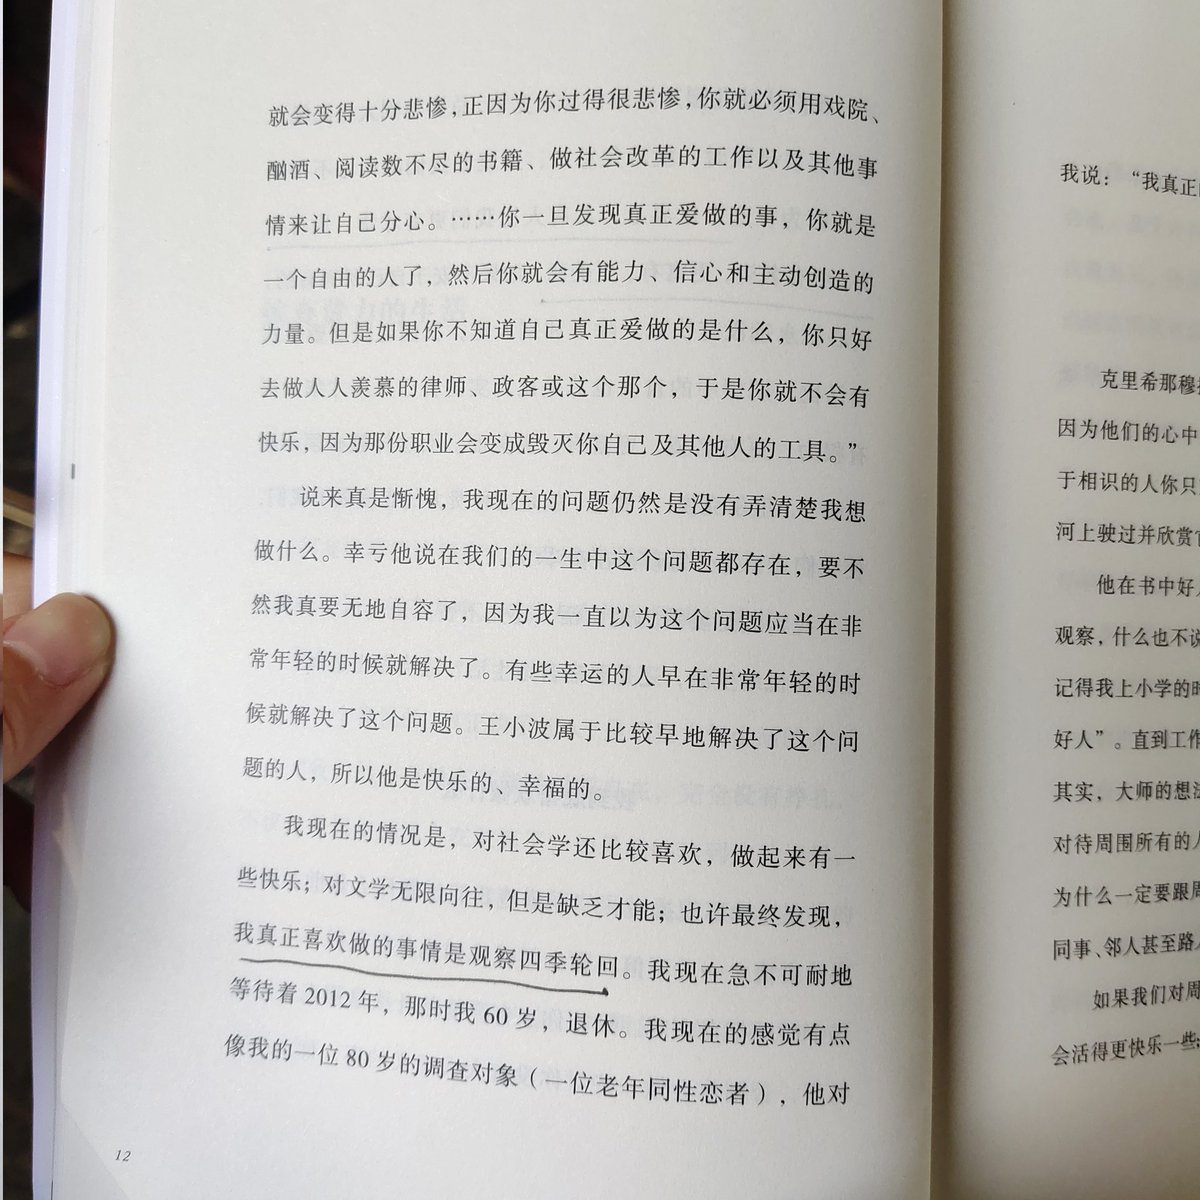 就会变得十分悲惨，正因为你过得很悲惨，你就必须用戏院、
酗酒、阅读数不尽的书籍、做社会改革的工作以及其他事
情来让自己分心。……你一旦发现真正爱做的事，你就是
一个自由的人了，然后你就会有能力、信心和主动创造的
力量。但是如果你不知道自己真正爱做的是什么，你只好
去做人人羡慕的律师、政客或这个那个，于是你就不会有
快乐，因为那份职业会变成毁灭你自己及其他人的工具。”
说来真是惭愧，我现在的问题仍然是没有弄清楚我想
做什么。幸亏他说在我们的一生中这个问题都存在，要不
然我真要无地自容了，因为我一直以为这个问题应当在非
常年轻的时候就解决了。有些幸运的人早在非常年轻的时
候就解决了这个问题。王小波属于比较早地解决了这个问
题的人，所以他是快乐的、幸福的。
我现在的情况是，对社会学还比较喜欢，做起来有一
些快乐；对文学无限向往，但是缺乏才能；也许最终发现，
我真正喜欢做的事情是观察四季轮回。我现在急不可耐地
等待着 2012 年，那时我 60 岁，退休。我现在的感觉有点
像我的一位 80 岁的调查对象（一位老年同性恋者），他对
12
我说：“我真正
克里希那穆
因为他们的心中
于相识的人你只
河上驶过并欣赏
他在书中好
观察，什么也不说
记得我上小学的时
好人”。直到工作
其实，大师的想法
对待周围所有的人
为什么一定要跟周
同事、邻人甚至路人
如果我们对周
会活得更快乐一些